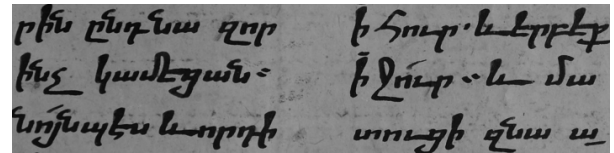 րին ընդնա զոր
ինչ կամեցան։
նոյնպէս և որդի
ի հուր. և երբեք
ի ջուր։ և մա
տուցի զնա ա